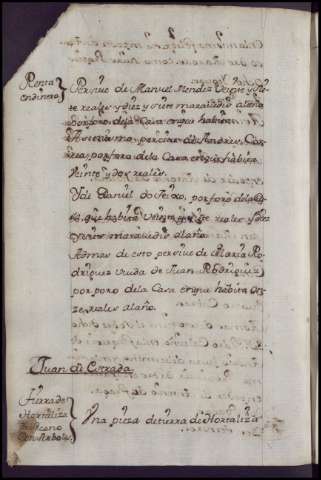 Renta
en dinero
Percive de Manuel Mendez Veinte y sie
te reales y diez y siete maravedis al año
por foro de la Casa en que havita
Asimismo, percive de Andres
por foro de la Casa en que havita
Veinte y dos reales
Y de Daniel do Seixo, por foro de la Ca
sa, que havita Veinte y siete reales y diez
y siete maravedis al año
Ademas de esto percive de Maria Ro
driguez viuda de Juan Rodriguez
por foro de la Casa en que havita on
ze reales al año
Juan de Estrada
Tierra de
Hortaliza
Secano
Con Arboles
Una pieza de tierra de Hortaliza